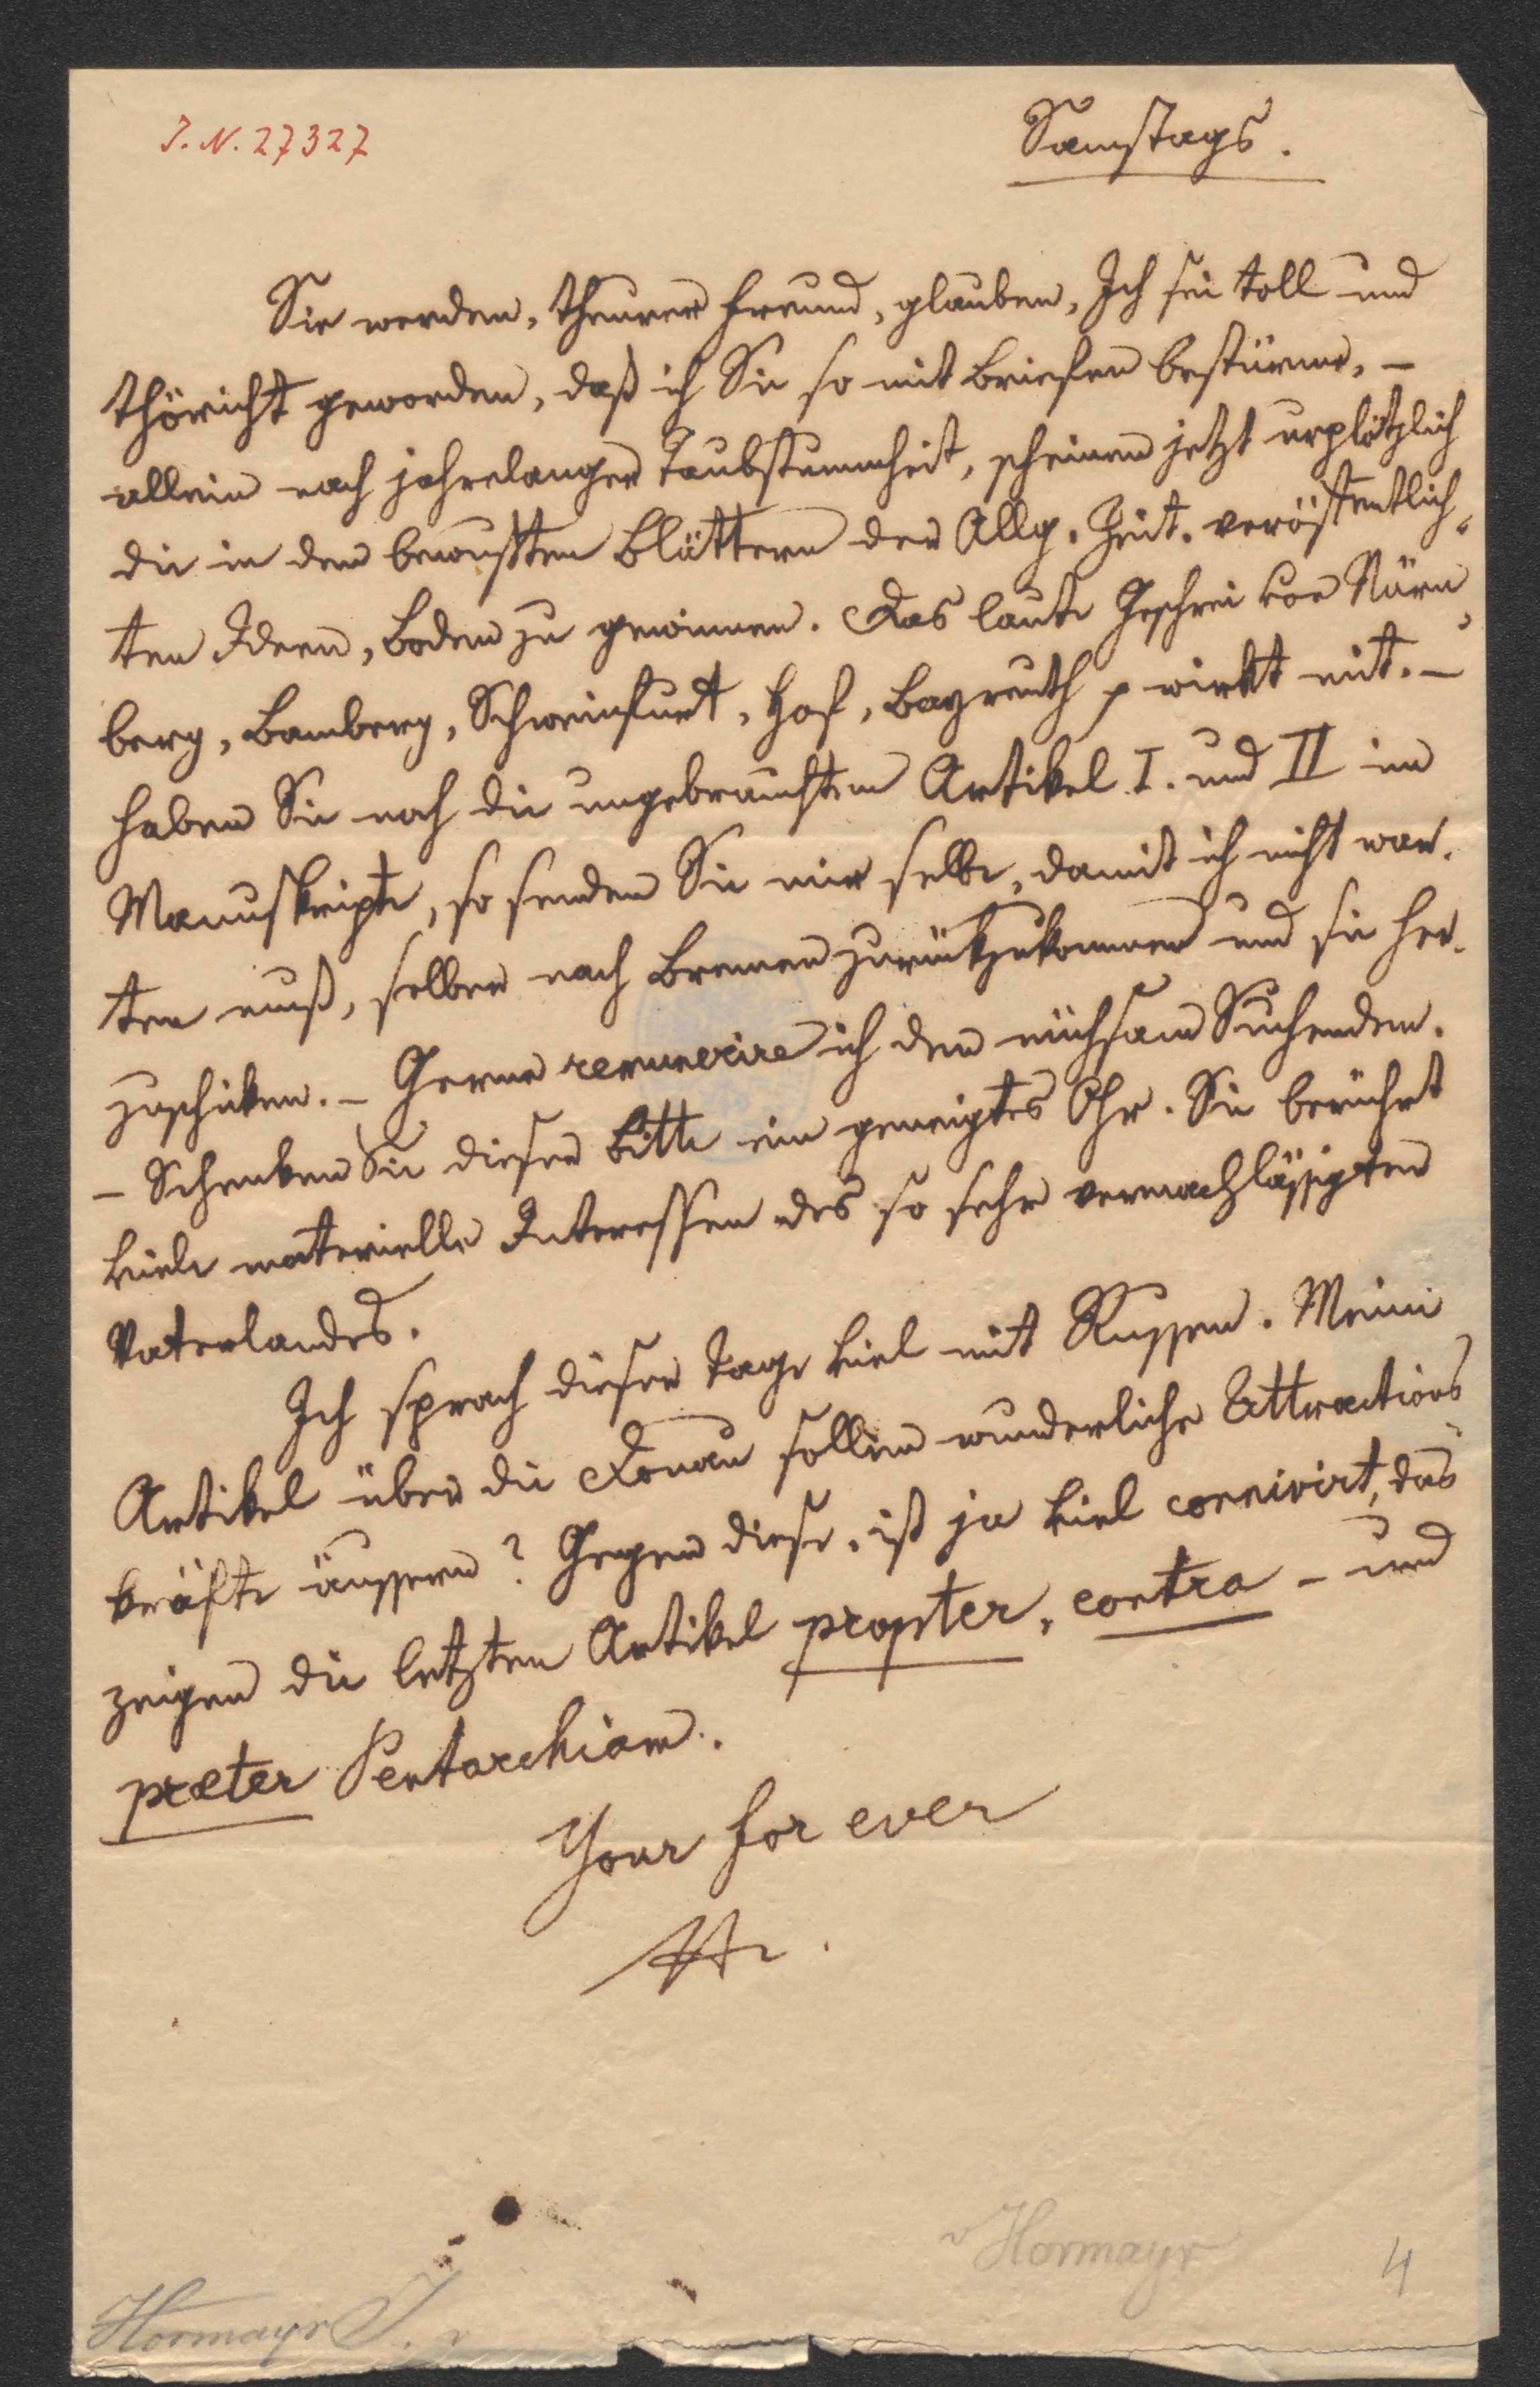 J. N. 27327
Samstags.
Sie werden, theurer Freund, glauben, Ich sei toll und
thöricht geworden, daß ich Sie so mit Briefen bestürme, –
allein nach jahrelanger Taubstummheit, scheinen jetzt urplötzlich
die in den bewußten Blättern der Allg. Zeit. veröffentlich„
ten Ideen, Boden zu gewinnen. Das laute Geschrei von Nürn„
berg, Bamberg, Schweinfurt, Hof, Bayreuth p wirkt mit. –
Haben Sie noch die ungebrauchten Artikel I. und II im
Manuskripte, so senden Sie mir selbe, damit ich nicht war-
ten muß, selber nach Bremen zurückzukommen und sie her-
zuschicken. – Gerne remunerire ich den mühsam Suchenden.
– Schenken Sie dieser Bitte ein geneigtes Ohr. Sie berührt
viele materielle Interessen des so sehr vernachläßigten
Vaterlandes.
Ich sprach dieser Tage viel mit Russen. Meine
Artikel über die Donau sollen wunderliche Attractions„
kräfte äussern? Gegen diese, ist ja viel connivirt, das
zeigen die letzten Artikel propter, contra – und
præter Pentarchiam.
Your for ever
Hr.
v Hormayr
4
Hormayr J. v